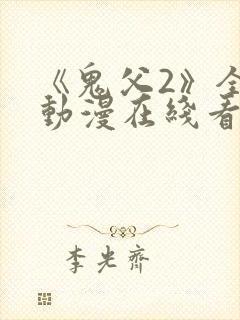 《鬼父2》全
動漫在綫看
李光齊